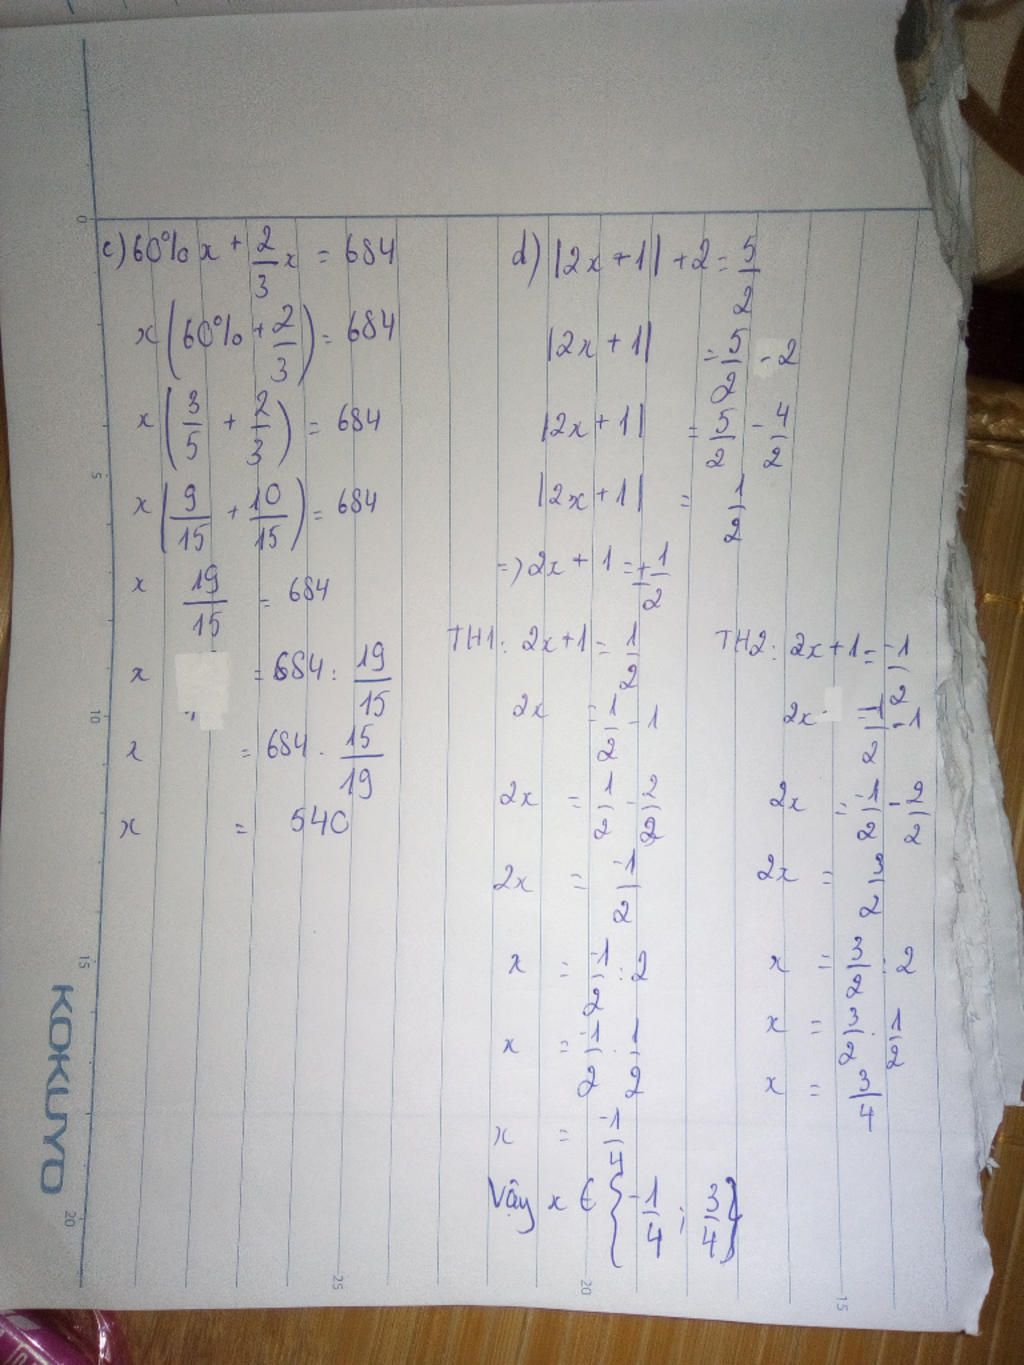 c) 60% x + 2/3 x = 684
x(60% + 2/3) = 684
x(3/5 + 2/3) = 684
x(9/15 + 10/15) = 684
x 19/15 = 684
x = 684 : 19/15
x = 684 . 15/19
x = 540
d) |2x + 1| + 2 = 5/2
|2x + 1| = 5/2 - 2
|2x + 1| = 5/2 - 4/2
|2x + 1| = 1/2
=> 2x + 1 = ± 1/2
TH1: 2x + 1 = 1/2
2x = 1/2 - 1
2x = 1/2 - 2/2
2x = -1/2
x = -1/2 : 2
x = -1/2 . 1/2
x = -1/4
TH2: 2x + 1 = -1/2
2x = -1/2 - 1
2x = -1/2 - 2/2
2x = 3/2
x = 3/2 : 2
x = 3/2 . 1/2
x = 3/4
Vậy x ∈ {-1/4 ; 3/4}
KOKUYO
0
5
10
15
20
25
20
15